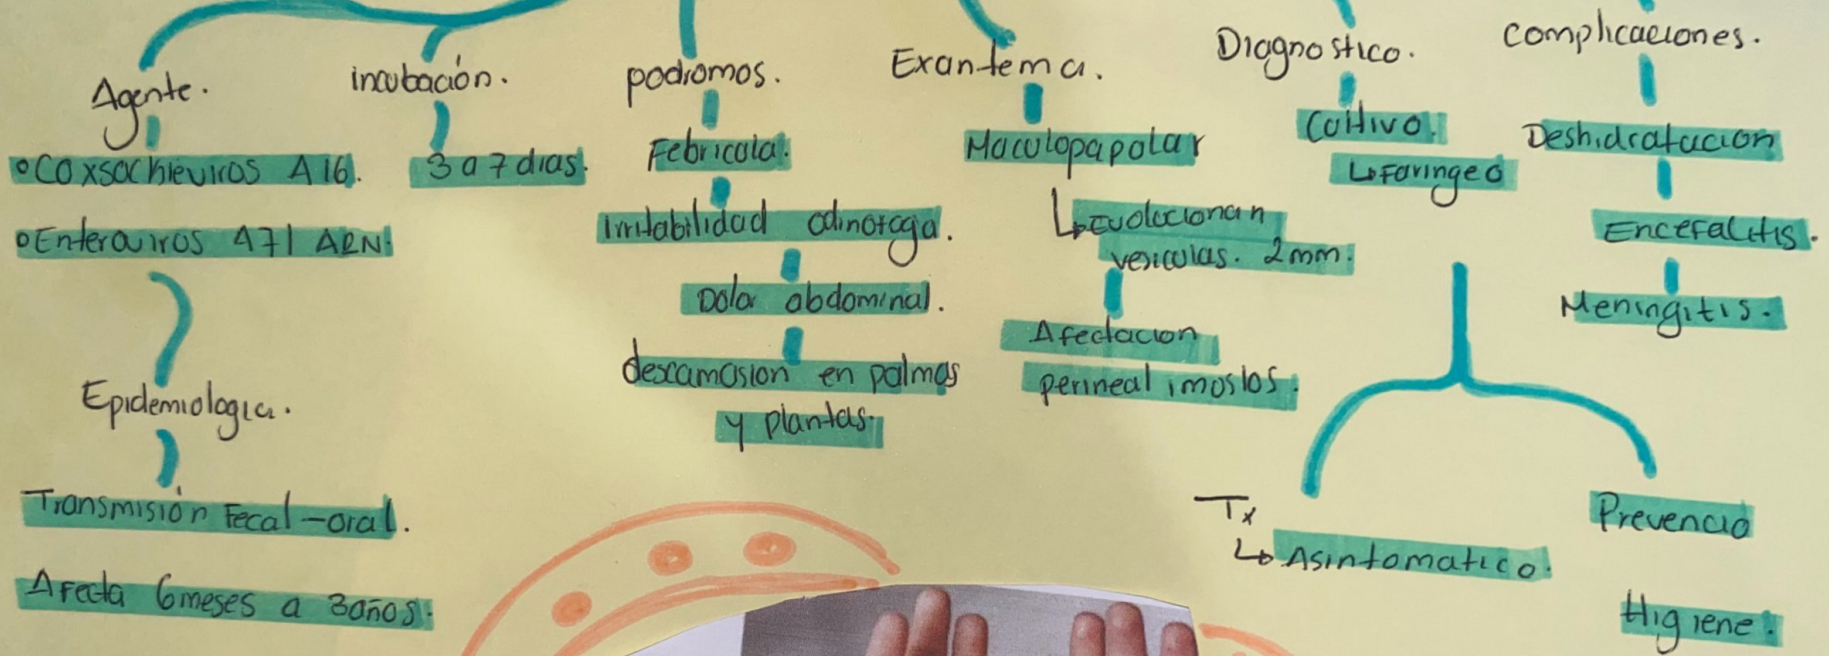 Agente.
•Coxsachieviros A16.
•Enteroviros A71 ARN.
Epidemiologia.
Transmisión Fecal-oral.
Afecta 6meses a 3años.
incubación.
3 a 7 dias.
podromos.
Febricola.
irritabilidad odinofaga.
Dolor abdominal.
descamasion en palmas
y plantas.
Exantema.
Maculopapolar
↳Evolucionan
vesiculas. 2mm.
Afectacion
perineal imoslos.
Diagnostico.
Coltivo.
↳Faringeo
Tx
↳ Asintomatico.
Prevencio
Higiene.
complicaciones.
Deshidratacion
Encefalitis.
Meningitis.